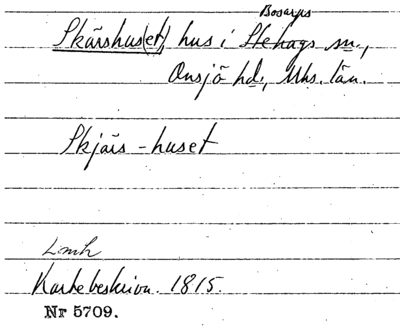 Bosarps
Skärshus(et), hus i Stehags sn.,
Onsjö hd., Mhs. län.
Skjärs-huset
Lmh
Kartebeskrivn. 1815.
Nr 5709.